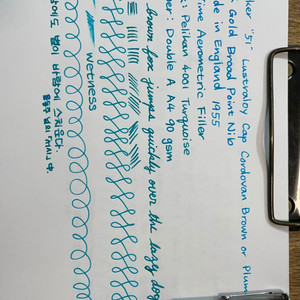 ker "51" Lustraloy Cap Cordovan Brown or Plum
Gold Broad Point Nib
de in England 1955
ime Aerometric Filler
: Pelikan 4001 Turquoise
er: Double A A4 90 gsm
brown fox jumps quickly over the lazy dog
wetness
별이 바람에 스치운다.